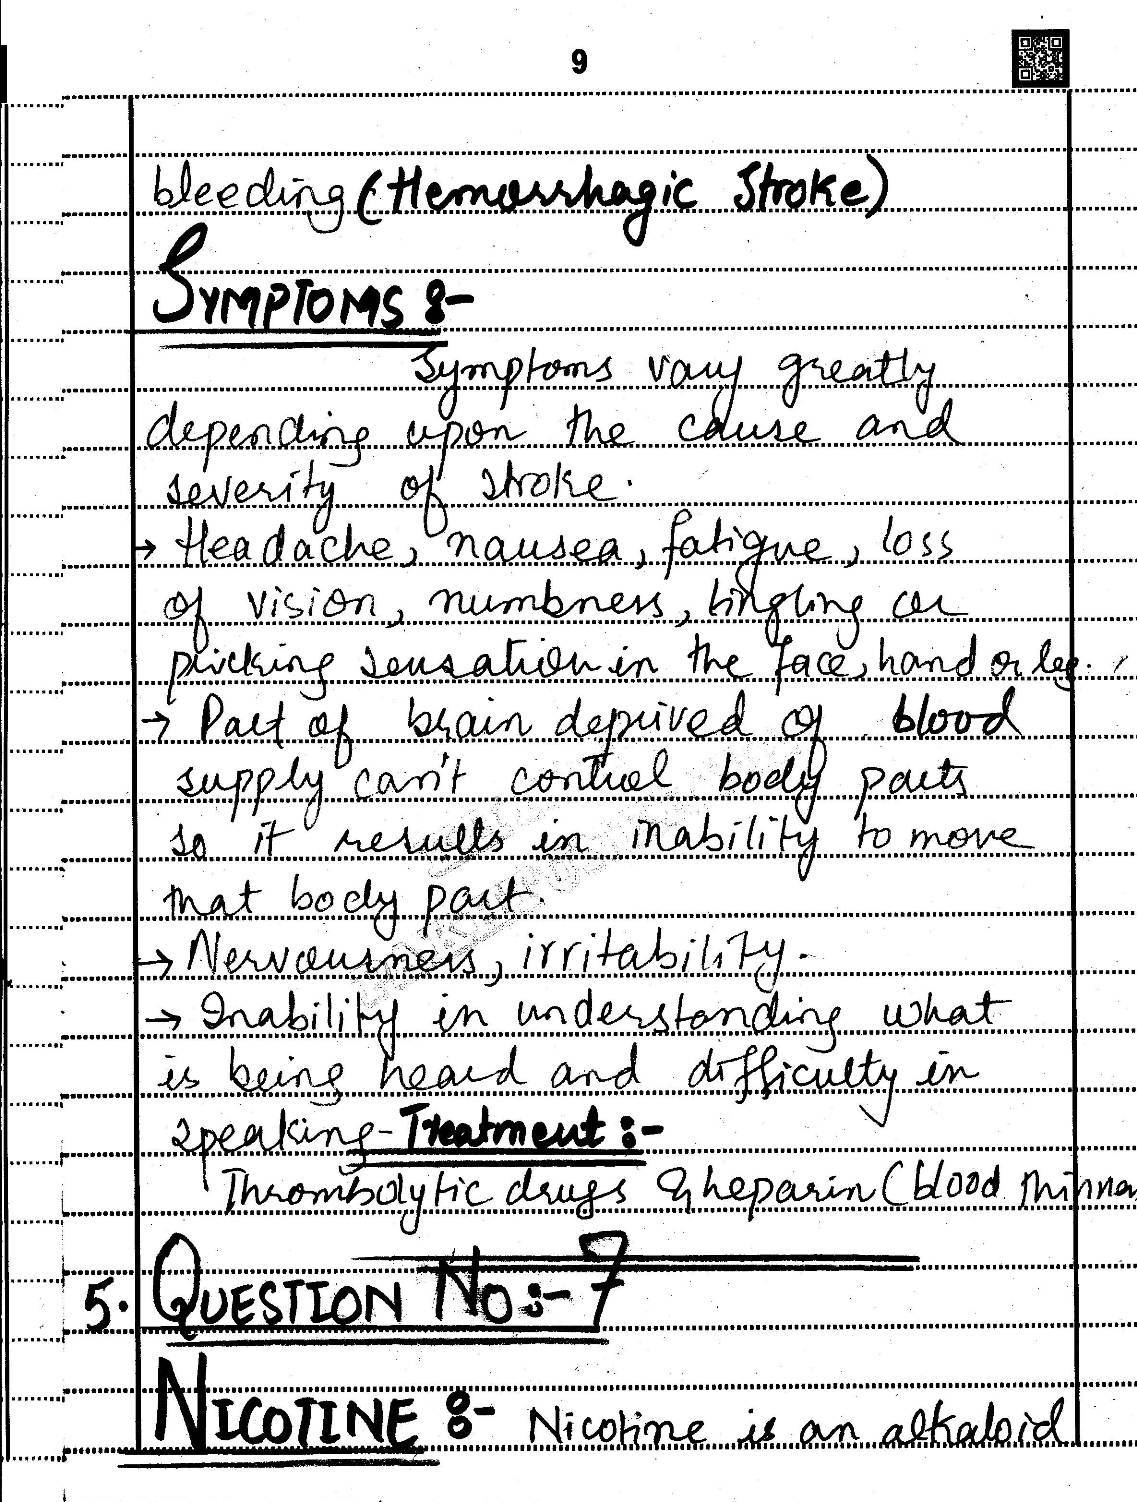 9
bleeding (Hemorrhagic Stroke)
SYMPTOMS :-
Symptoms vary greatly
depending upon the cause and
severity of stroke.
→ Headache, nausea, fatigue, loss
of vision, numbness, tingling or
pricking sensation in the face, hand or leg.
→ Part of brain deprived of blood
supply can't control body parts
so it results in inability to move
that body part.
→ Nervousness, irritability.
→ Inability in understanding what
is being heard and difficulty in
speaking- Treatment :-
Thrombolytic drugs & heparin (blood thinner
5. QUESTION NO :- 7
NICOTINE :- Nicotine is an alkaloid